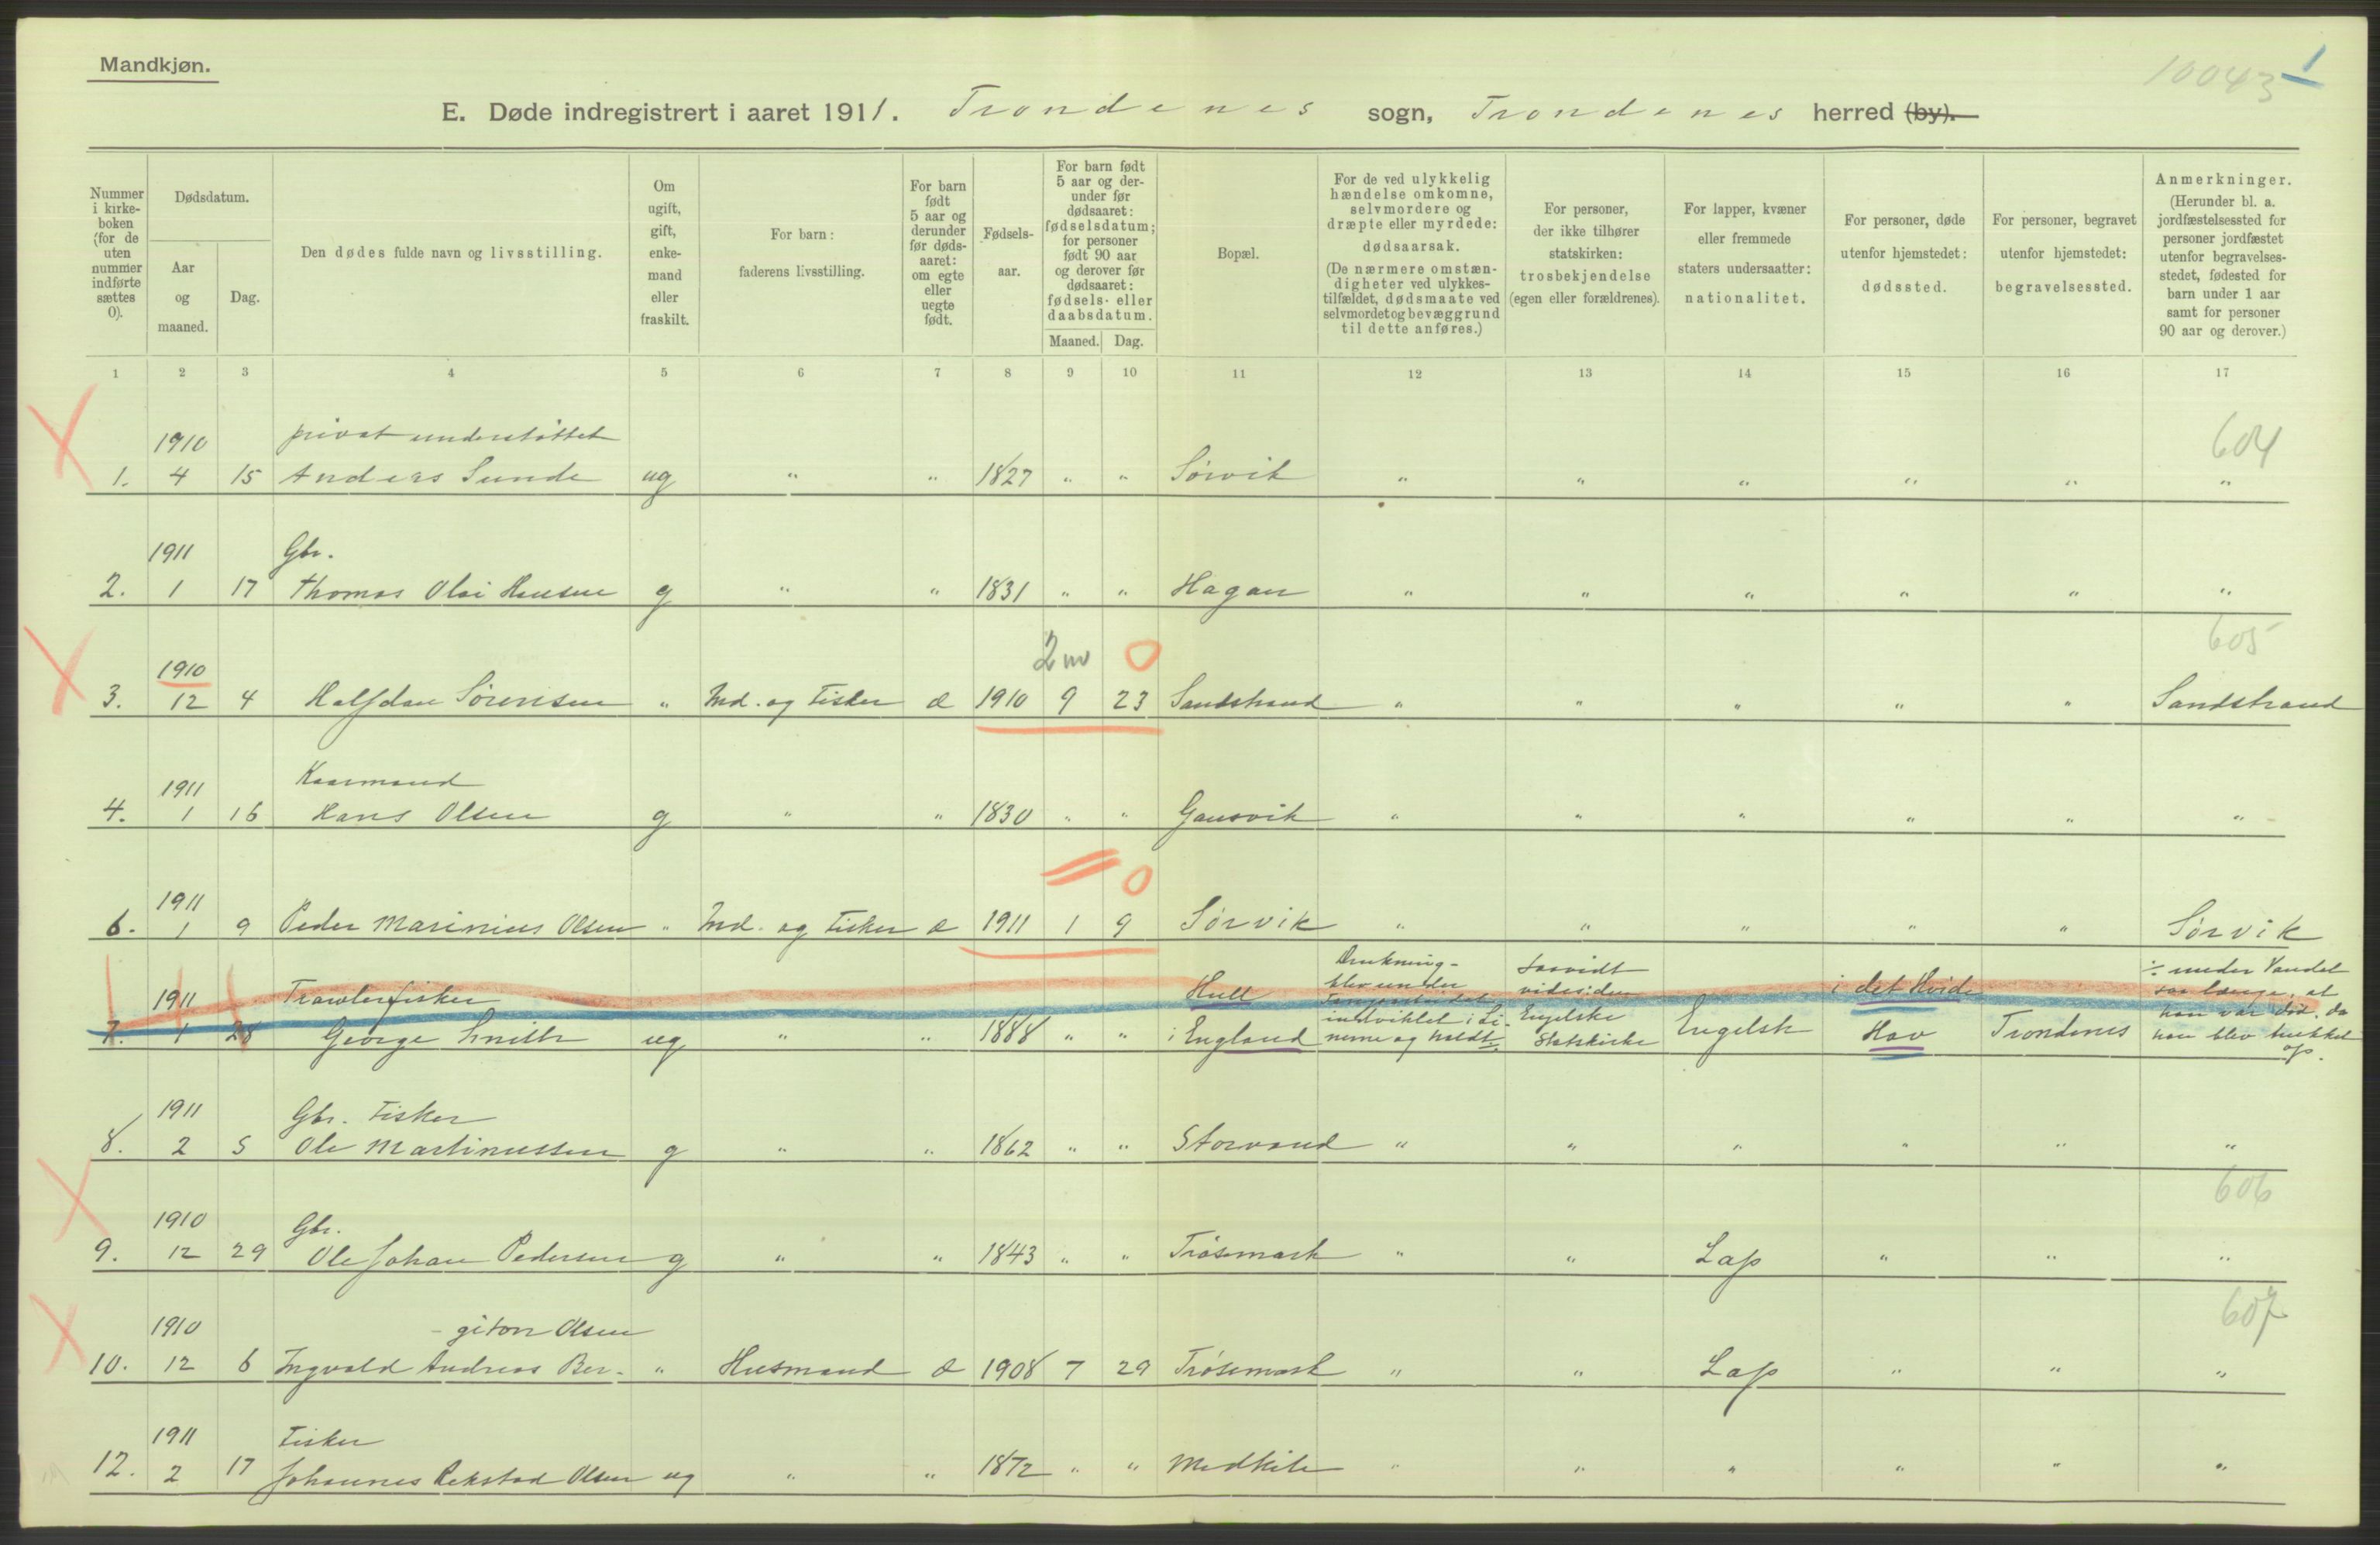 Mandkjøn.
10043 1
E. Døde indregistrert i aaret 1911. Trondenes sogn, Trondenes herred (by).
Nummer i kirke- boken (for de uten nummer indførte sættes 0).
Dødsdatum.
Aar og maaned.
Dag.
Den dødes fulde navn og livsstilling.
Om ugift, gift, enke- mand eller fraskilt.
For barn: faderens livsstilling.
For barn født 5 aar og derunder før døds- aaret: om egte eller uegte født.
Fødsels- aar.
For barn født 5 aar og der- under før dødsaaret: fødselsdatum; for personer født 90 aar og derover før dødsaaret: fødsels- eller daabsdatum.
Maaned. Dag.
Bopæl.
For de ved ulykkelig hændelse omkomne, selvmordere og dræpte eller myrdede: dødsaarsak. (De nærmere omstæn- digheter ved ulykkes- tilfældet, dødsmaate ved selvmordet og bevæggrund til dette anføres.)
For personer, der ikke tilhører statskirken: trosbekjendelse (egen eller forældrenes).
For lapper, kvæner eller fremmede staters undersaatter: nationalitet.
For personer, døde utenfor hjemstedet: dødssted.
For personer, begravet utenfor hjemstedet: begravelsessted.
Anmerkninger. (Herunder bl. a. jordfæstelsessted for personer jordfæstet utenfor begravelses- stedet, fødested for barn under 1 aar samt for personer 90 aar og derover.)
1 2 3 4 5 6 7 8 9 10 11 12 13 14 15 16 17
1910 privat understøttet 604
1. 4 15 Anders Sunde ug " " 1827 " " Sørvik " " " " " "
1911 Gbr.
2. 1 17 Thomas Olai Hansen g " " 1831 " " Hagan " " " " " "
1910 2 m 0 605
3. 12 4 Halfdan Sørensen " Ind. og Fisker æ 1910 9 23 Sandstrand " " " " " Sandstrand
1911 Kaarmand
4. 1 16 Hans Olsen g " " 1830 " " Gausvik " " " " " "
1911 0
6. 1 9 Peder Marinius Olsen " Ind. og Fisker æ 1911 1 9 Sørvik " " " " " Sørvik
1911 Trawlerfisker Hull Drukning - blev under indviklet i Li- saavidt vides: den Engelske i det Hvide ÷ under Vandet saa længe, at han var død, da
7. 1 28 George Smith ug " " 1888 " " i England nerne og holdt ÷ Statskirke Engelsk Hav Trondenes han blev trukket op.
1911 Gbr. Fisker
8. 2 5 Ole Martinussen g " " 1862 " " Storvand " " " " " "
1910 Gbr. 606
9. 12 29 Ole Johan Pedersen g " " 1843 " " Trøsemark " " Lap " " "
1910 - giton Olsen 607
10. 12 6 Ingvald Andreas Ber- " Husmand æ 1908 7 29 Trøsemark " " Lap " " "
1911 Fisker
12. 2 17 Johannes Rekstad Olsen ug " " 1872 " " Medkila " " " " " "